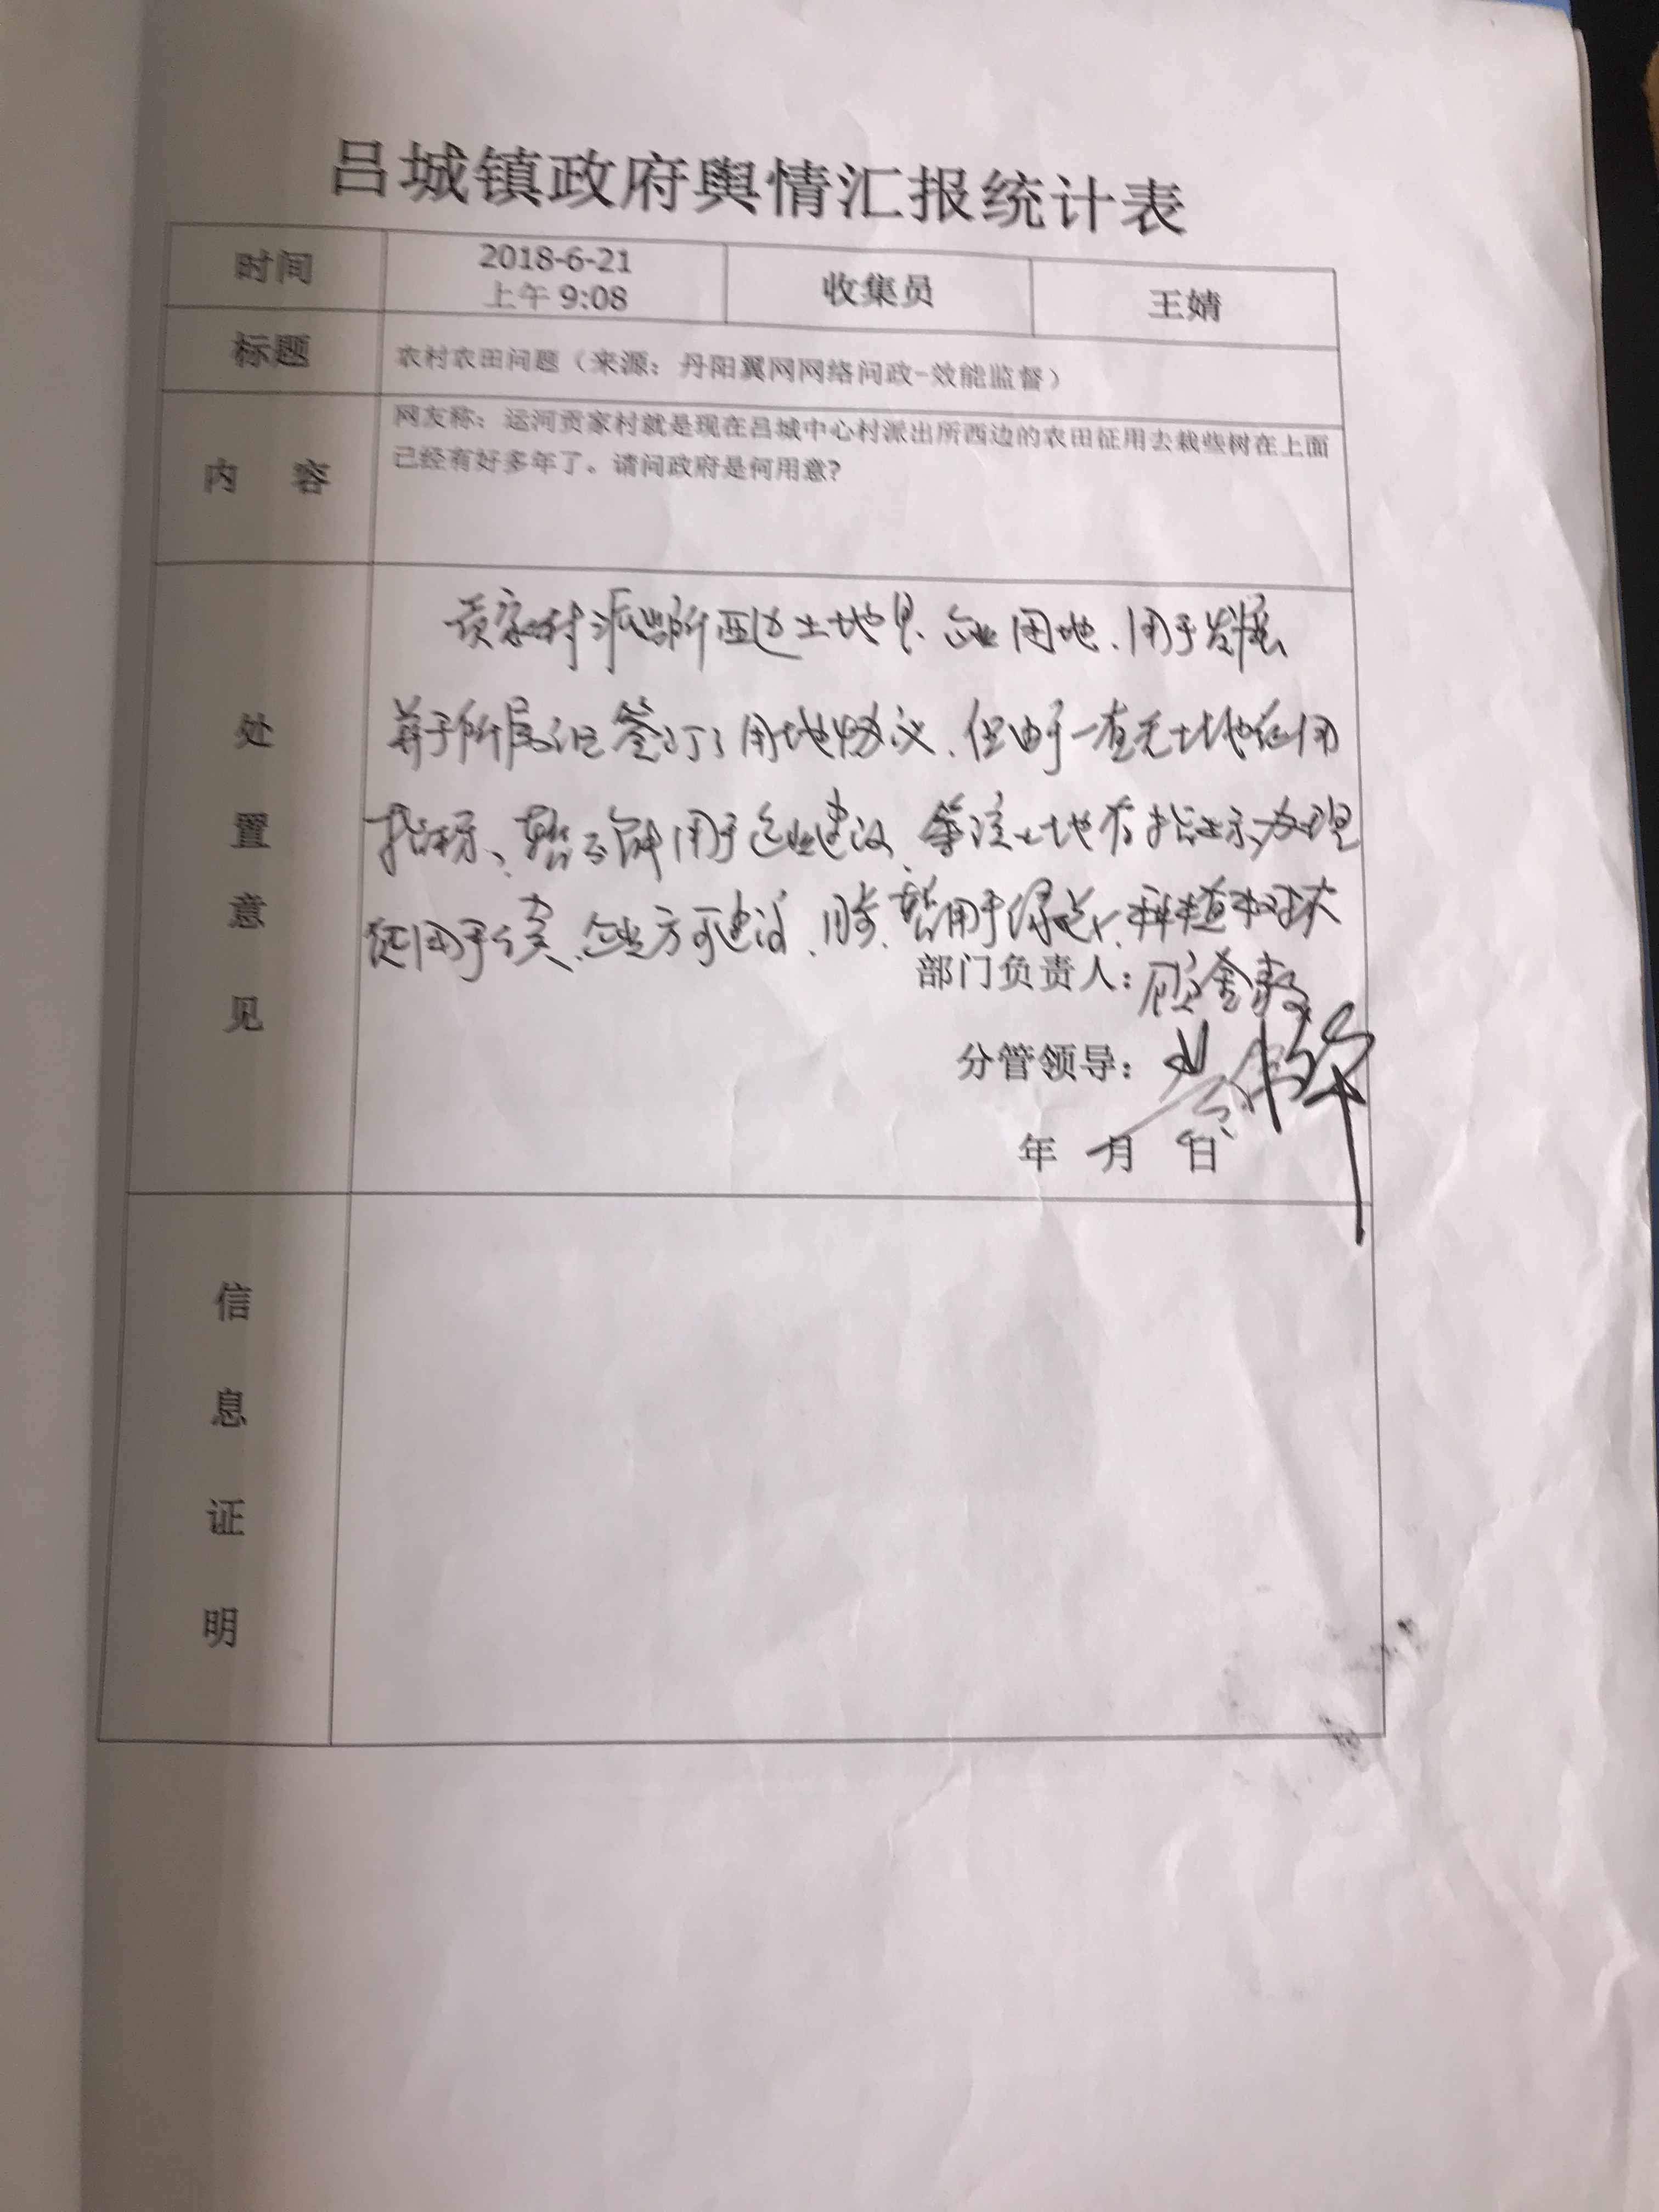 吕城镇政府舆情汇报统计表
时间 2018-6-21 上午 9:08 收集员 王婧
标题 农村农田问题（来源：丹阳翼网网络问政-效能监督）
内 容 网友称：运河贡家村就是现在吕城中心村派出所西边的农田征用去栽些树在上面
已经有好多年了。请问政府是何用意？
处置意见
贡家村派出所西边土地是企业用地、用于发展
并于所属组签订了用地协议、但由于一直无土地征用
指标、暂不能用于企业建设、等该土地有指标办理
征用手续、企业方可建设、暂用于绿化、种植树木
部门负责人：
分管领导：
年 月 日
信息证明